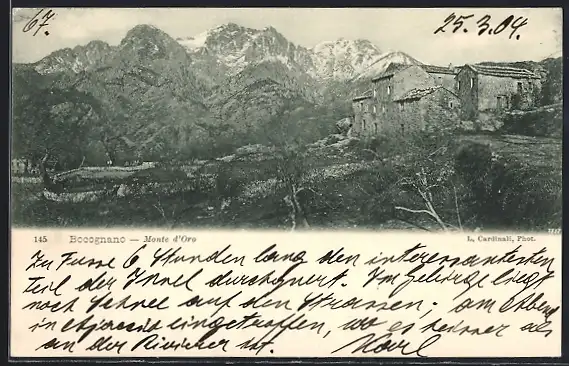 67.
25.3.04.
145 Bocognano — Monte d'Oro
L. Cardinali, Phot.
Zu Fusse 6 Stunden lang den interessantesten
teil der Insel durchquert. Im gebirge liegt
noch Schnee auf den Strassen; am Abend
in Ajaccio eingetroffen, wo es heisser als
an der Riviera ist. Karl